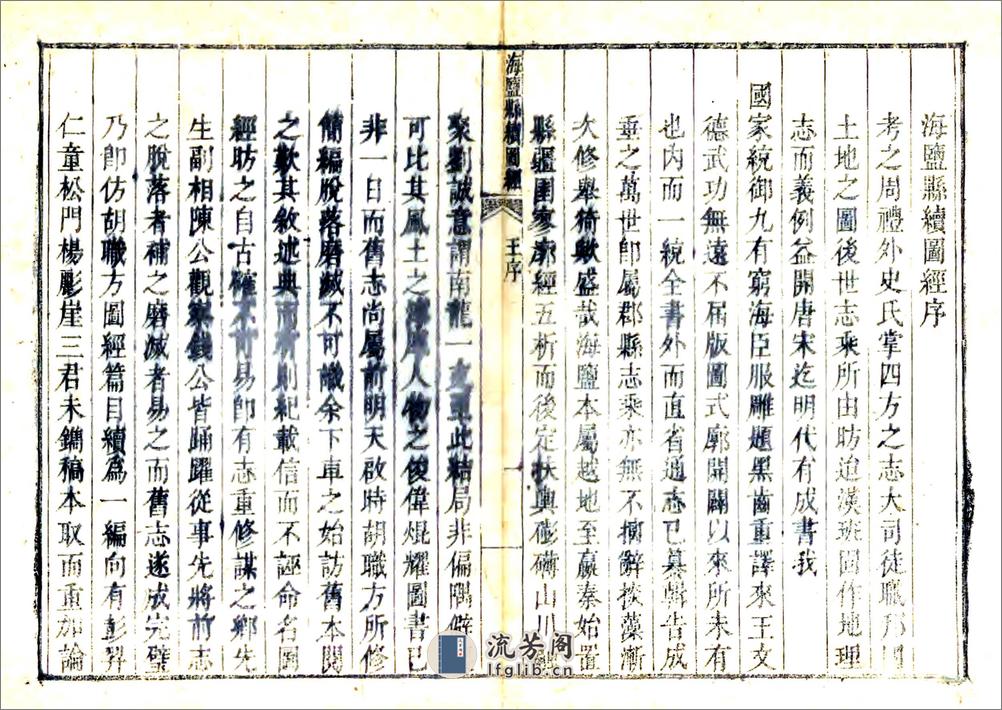 海鹽縣續圖經序
考之周禮外史氏掌四方之志大司徒職邦國
土地之圖後世志乘所由昉迨漢班固作地理
志而義例益開唐宋迄明代有成書我
國家統御九有窮海臣服雕題黑齒重譯來王文
德武功無遠不屆版圖式廓開闢以來所未有
也內而一統全書外而直省通志已纂輯告成
垂之萬世卽屬郡縣志乘亦無不摛辭掞藻漸
次修舉猗歟盛哉海鹽本屬越地至嬴秦始置
縣疆圉寥廓經五析而後定扶輿磅礡山川
海鹽縣續圖經
王序
一
聚劉誠意謂南龍一支至此結局非偏隅僻
可比其風土之 人物之俊偉焜耀圖書已
非一日而舊志尚屬前明天啟時胡職方所修
簡編脫落磨滅不可識余下車之始訪舊本閱
之歎其敘述典而 則紀載信而不誣命名圖
經昉之自古確不可易卽有志重修謀之鄉先
生副相陳公觀察錢公皆踊躍從事先將前志
之脫落者補之磨滅者易之而舊志遂成完璧
乃卽仿胡職方圖經篇目續爲一編向有彭羿
仁童松門楊彫崖三君未鐫稿本取而重加論
流芳阁
lfglib.cn